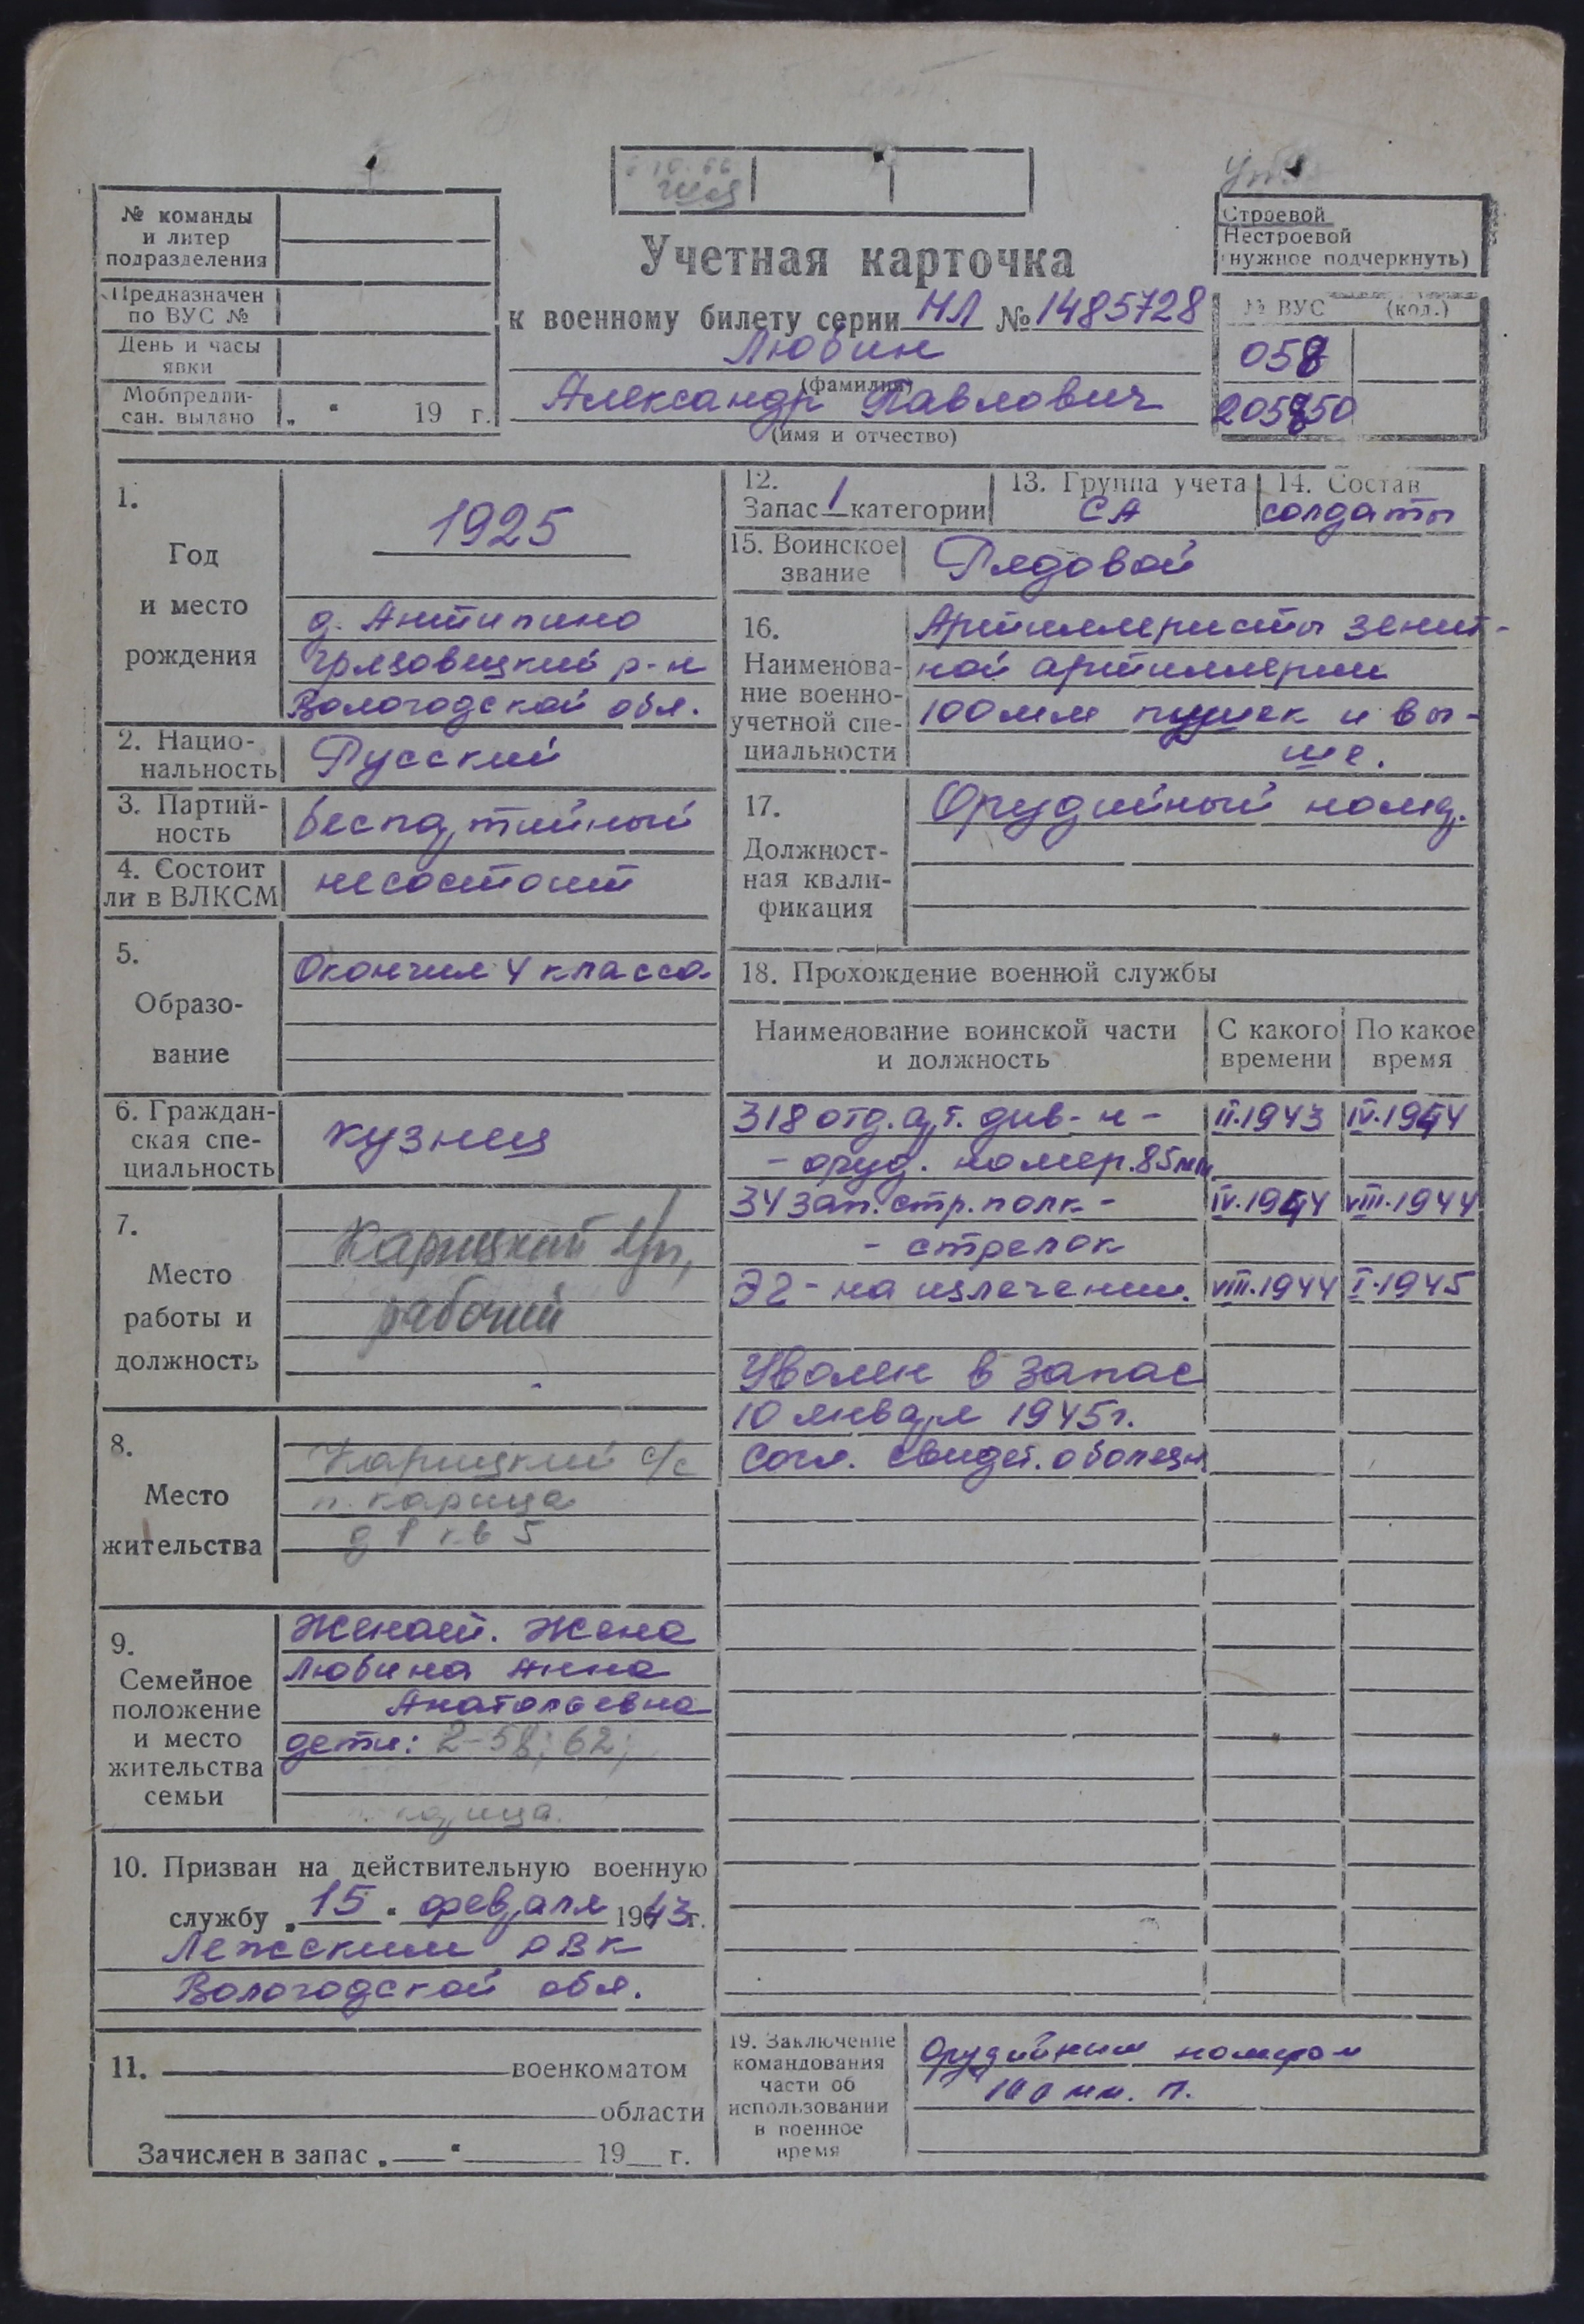 6 10.66
№ команды
и литер
подразделения
Предназначен
по ВУС №
День и часы
явки
Мобпредпи-
сан. выдано „ “ 19 г.
Учетная карточка
к военному билету серии НЛ № 1485728
Любин
(фамилия)
Александр Павлович
(имя и отчество)
Строевой
Нестроевой
(нужное подчеркнуть)
№ ВУС (код.)
058
205850
1.
Год
и место
рождения
1925
д. Антипино
Грязовецкий р-н
Вологодской обл.
2. Нацио-
нальность
Русский
3. Партий-
ность
беспартийный
4. Состоит
ли в ВЛКСМ
несостоит
5.
Образо-
вание
Окончил 4 класса
6. Граждан-
ская спе-
циальность
кузнец
7.
Место
работы и
должность
Карицкий
рабочий
8.
Место
жительства
Карицкий с/с
п. Карица
д 1 кв 5
9.
Семейное
положение
и место
жительства
семьи
Женат. Жена
Любина Анна
Анатольевна
дети: 2-58; 62;
п. Карица.
10. Призван на действительную военную
службу „15“ февраля 1943г.
Лежским РВК
Вологодской обл.
11. военкоматом
области
Зачислен в запас „ “ 19 г.
12.
Запас 1 категории
13. Группа учета
СА
14. Состав
солдаты
15. Воинское
звание
Рядовой
16.
Наименова-
ние военно-
учетной спе-
циальности
Артиллеристы зенит-
ной артиллерии
100мм пушек и вы-
ше.
17.
Должност-
ная квали-
фикация
Орудийный номер.
18. Прохождение военной службы
Наименование воинской части
и должность
С какого
времени
По какое
время
318 отд. арт. див-н - II.1943 IV.1944
- оруд. номер. 85мм
34 зап. стр. полк - IV.1944 VIII.1944
- стрелок
ЭГ - на излечении. VIII.1944 I.1945
Уволен в запас
10 января 1945г.
Согл. свидет. о болезн
19. Заключение
командования
части об
использовании
в военное
время
Орудийным номером
100 мм. п.